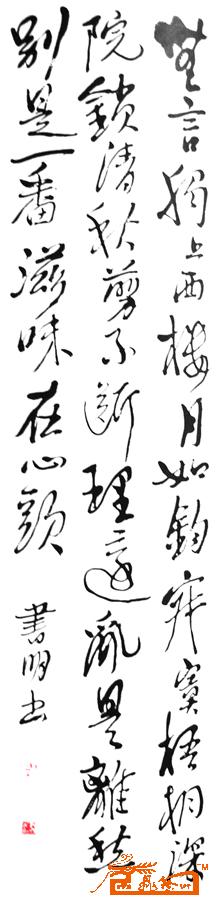 無言獨上西樓月如鈎寂寞梧桐深
院鎖清秋剪不斷理還亂是離愁
別是一番滋味在心頭
書明書